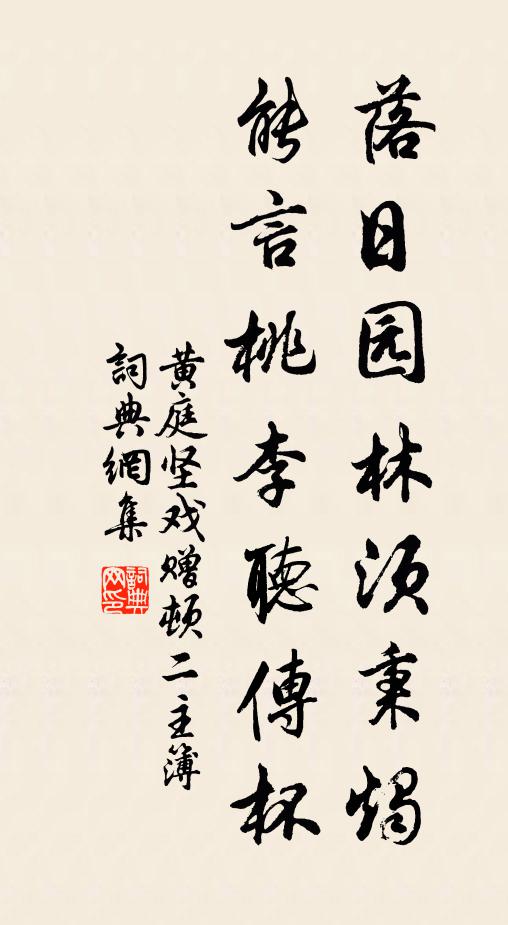 落日园林须秉燭
能言桃李聽傳杯
黄庭坚戏赠頓二主簿
詞典網集
詞典网印